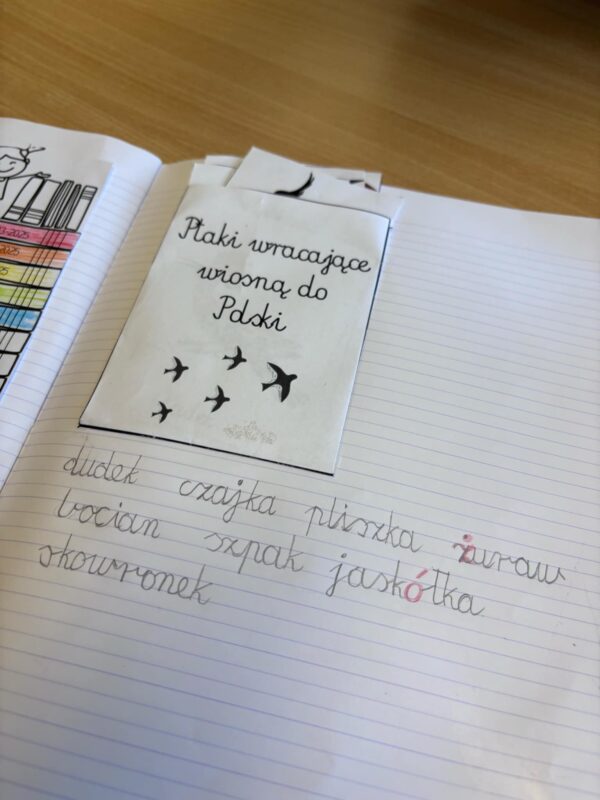 3-2025
2025
25
Ptaki wracające
wiosną do
Polski
dudek czajka pliszka żuraw
bocian szpak jaskółka
skowronek